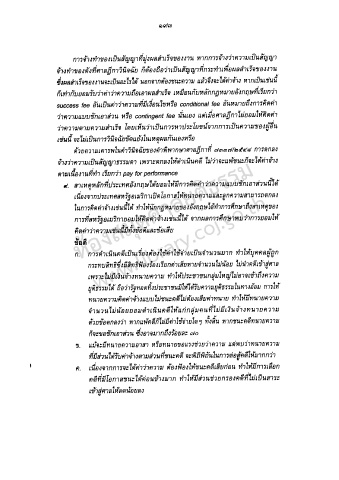 ๑๙๓
การจ้างทำของเป็นสัญญาที่มุ่งผลสำเร็จของงาน หากการจ้างว่าความเป็นสัญญา
จ้างทำของดังที่ศาลฎีกาวินิจฉัย ก็ต้องถือว่าเป็นสัญญาที่กระทำเพื่อผลสำเร็จของงาน
ซึ่งผลสำเร็จของงานจะเป็นอะไรได้ นอกจากต้องชนะความ แล้วจึงจะได้ค่าจ้าง หากเป็นเช่นนี้
ก็เท่ากับยอมรับว่าค่าว่าความถือเอาผลสำเร็จ เหมือนกับหลักกฎหมายอังกฤษที่เรียกว่า
success fee อันเป็นค่าว่าความที่มีเงื่อนไขหรือ conditional fee อันหมายถึงการคิดค่า
ว่าความแบบชักเอาส่วน หรือ contingent fee นั่นเอง แต่เมื่อศาลฎีกาไม่ยอมให้คิดค่า
ว่าความตามความสำเร็จ โดยเห็นว่าเป็นการหาประโยชน์จากการเป็นความของผู้อื่น
เช่นนี้ จะไม่เป็นการวินิจฉัยขัดแย้งในเหตุผลกันเองหรือ
ด้วยความเคารพในคำวินิจฉัยของคำพิพากษาศาลฎีกาที่ การตกลง
จ้างว่าความเป็นสัญญาธรรมดา เพราะตกลงให้ดำเนินคดี ไม่ว่าจะแพ้ชนะก็จะได้ค่าจ้าง
ตามเนื้องานที่ทำ เรียกว่า pay for performance
๔. สาเหตุหลักที่ประเทศอังกฤษได้ยอมให้มีการคิดค่าว่าความแบบชักเอาส่วนนี้ได้
เนื่องจากประเทศสหรัฐอเมริกาเปิดโอกาสให้ทนายความและลูกความสามารถตกลง
ในการคิดค่าจ้างเช่นนี้ได้ ทำให้นักกฎหมายของอังกฤษได้ทำการศึกษาถึงสาเหตุของ
การที่สหรัฐอเมริกายอมให้คิดค่าจ้างเช่นนี้ได้ จากผลการศึกษาพบว่าการยอมให้
คิดค่าว่าความเช่นนี้มีทั้งข้อดีและข้อเสีย
ข้อดี
ก. การดำเนินคดีเป็นเรื่องต้องใช้ค่าใช้จ่ายเป็นจำนวนมาก ทำให้บุคคลผู้ถูก
กระทบสิทธิซึ่งมีสิทธิฟ้องร้องเรียกค่าเสียหายจำนวนไม่น้อย ไม่นำคดีเข้าสู่ศาล
เพราะไม่มีเงินจ้างทนายความ ทำให้ประชาชนกลุ่มใหญ่ไม่อาจเข้าถึงความ
ยุติธรรมได้ ถือว่ารัฐกดขี่ประชาชนมิให้ได้รับความยุติธรรมในทางอ้อม การให้
ทนายความคิดค่าจ้างแบบไม่ชนะคดีไม่ต้องเสียค่าทนาย ทำให้มีทนายความ
จำนวนไม่น้อยยอมดำเนินคดีให้แก่กลุ่มคนที่ไม่มีเงินจ้างทนายความ
ด้วยข้อตกลงว่า หากแพ้คดีก็ไม่มีค่าใช้จ่ายใดๆ ทั้งสิ้น หากชนะคดีทนายความ
ก็จะขอชักเอาส่วน ซึ่งอาจมากถึงร้อยละ ๗๐
ข. แม้จะมีทนายความอาสา หรือทนายขอแรงช่วยว่าความ แต่พบว่าทนายความ
ที่มีส่วนได้รับค่าจ้างตามส่วนที่ชนะคดี จะพิถีพิถันในการต่อสู้คดีให้มากกว่า
ค. เนื่องจากการจะได้ค่าว่าความ ต้องฟ้องให้ชนะคดีเสียก่อน ทำให้มีการเลือก
คดีที่มีโอกาสชนะได้ค่อนข้างมาก ทำให้มีส่วนช่วยกรองคดีที่ไม่เป็นสาระ
เข้าสู่ศาลให้ลดน้อยลง